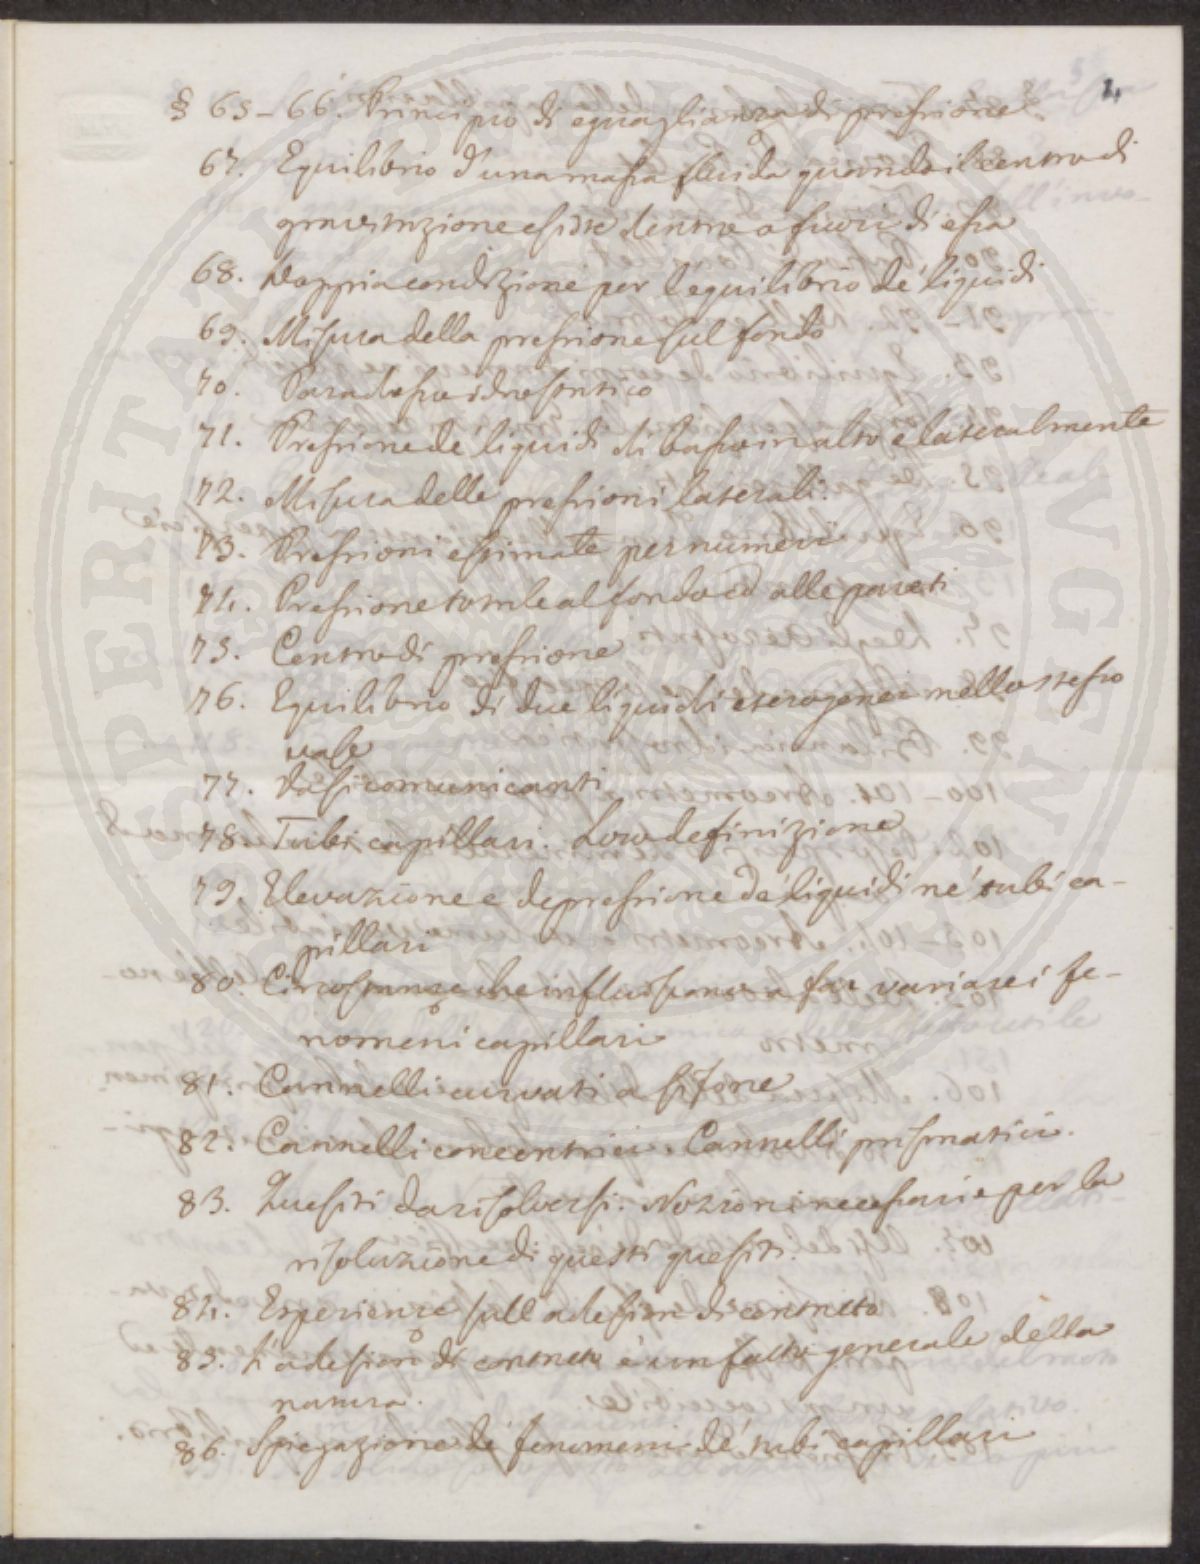 4
§ 65-66. Principio di eguaglianza di pressione
67. Equilibrio d'una massa fluida quando il centro di
gravitazione esiste dentro o fuori di essa
68. Doppia condizione per l'equilibrio de' liquidi
69. Misura della pressione sul fondo
70. Paradosso idrostatico
71. Pressione de' liquidi di basso in alto e lateralmente
72. Misura delle pressioni laterali.
73. Pressioni espimate per numeri
74. Pressione totale al fondo ed alle pareti
75. Centro di pressione
76. Equilibrio di due liquidi eterogenei nello stesso
vase
77. Vasi comunicanti
78. Tubi capillari. Loro definizione
79. Elevazione e depressione de' liquidi ne' tubi ca-
pillari
80. Circostanze che influiscono a far variare i fe-
nomeni capillari
81. Cannelli curvati a sifone
82. Cannelli concentrici. Cannelli prismatici.
83. Quesiti da risolversi. Nozioni necessarie per la
risoluzione di questi quesiti.
84. Esperienze sull'adesion di contatto
85. L'adesion di contatto è un fatto generale della
natura.
86. Spiegazione de' fenomeni de' tubi capillari